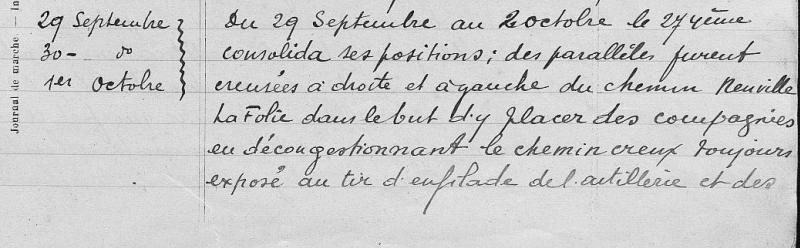 Journal de marche — In
29 Septembre
30 - do
1er Octobre
Du 29 Septembre au 2 octobre le 274ème
consolida ses positions ; des parallèles furent
creusées à droite et à gauche du chemin Neuville
La Folie dans le but d'y placer des compagnies
en décongestionnant le chemin creux toujours
exposé au tir d'enfilade de l'artillerie et des